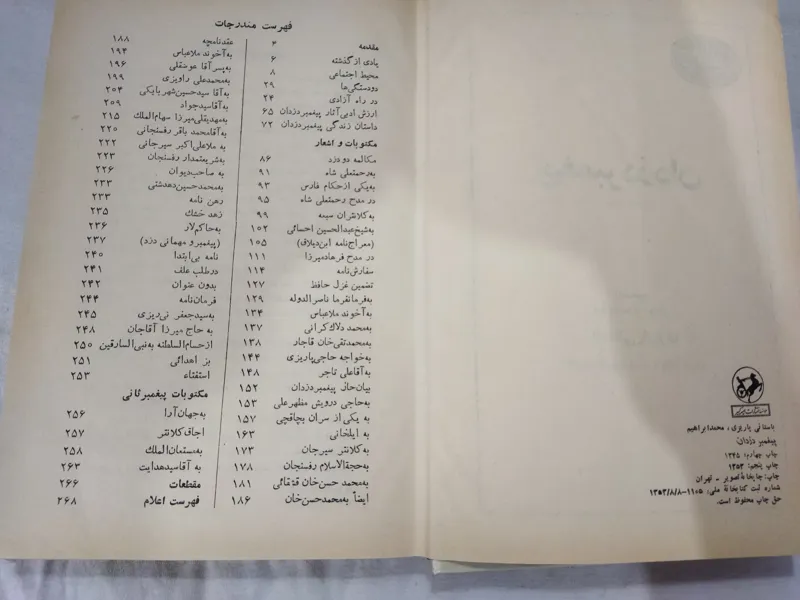 فهرست مندرجات
مقدمه ۴
یادی از گذشته ۶
محیط اجتماعی ۸
دودستگی‌ها ۲۹
در راه آزادی ۲۴
ارزش ادبی آثار پیغمبر دزدان ۶۵
داستان زندگی پیغمبر دزدان ۷۲
مکتوبات و اشعار
مکالمه دو دزد ۸۶
به‌رحمتعلی شاه ۹۱
به‌یکی از حکام فارس ۹۳
در مدح رحمتعلی شاه ۹۵
به‌کلانتران سبعه ۹۹
به‌شیخ عبدالحسین احسائی ۱۰۲
(معراج‌نامه ابن‌دیلاق) ۱۰۵
در مدح فرهاد میرزا ۱۱۱
سفارش‌نامه ۱۱۴
تضمین غزل حافظ ۱۲۷
به‌فرمانفرما ناصرالدوله ۱۲۹
به‌آخوند ملاعباس ۱۳۴
به‌محمد دلاک کرانی ۱۳۷
به‌محمدتقی‌خان قاجار ۱۳۸
به‌خواجه حاجی پاریزی ۱۴۴
به‌آقاعلی تاجر ۱۴۸
بیان حال پیغمبر دزدان ۱۵۲
به‌حاجی درویش مظهرعلی ۱۵۳
به یکی از سران بچاقچی ۱۵۷
به ایلخانی ۱۶۳
به‌کلانتر سیرجان ۱۷۳
به‌حجةالاسلام رفسنجان ۱۷۸
به‌محمد حسن‌خان قشقائی ۱۸۱
ایضاً به‌محمدحسن‌خان ۱۸۶
عقدنامچه ۱۸۸
به‌آخوند ملاعباس ۱۹۴
به‌پسر آقا عوضقلی ۱۹۶
به‌محمدعلی راویزی ۱۹۹
به‌آقا سیدحسین شهربابکی ۲۰۴
به‌آقاسیدجواد ۲۰۹
به‌مهدیقلی میرزا سهام‌الملک ۲۱۵
به‌آقامحمد باقر رفسنجانی ۲۲۰
به ملاعلی‌اکبر سیرجانی ۲۲۲
به‌شریعتمدار رفسنجان ۲۲۳
به صاحب‌دیوان ۲۲۶
به‌محمدحسین دهدشتی ۲۳۳
رهن نامه ۲۳۳
زهد خشک ۲۳۵
به‌حاکم لار ۲۳۶
(پیغمبر و مهمانی دزد) ۲۳۷
نامه بی‌ابتدا ۲۴۰
در طلب علف ۲۴۱
بدون عنوان ۲۴۲
فرمان‌نامه ۲۴۴
به‌سیدجعفر نی‌ریزی ۲۴۵
به حاج میرزا آقاجان ۲۴۸
از حسام السلطنه به نبی‌السارقین ۲۵۰
بز اهدائی ۲۵۱
استفتاء ۲۵۳
مکتوبات پیغمبر ثانی
به‌جهان‌آرا ۲۵۶
اجاق کلانتر ۲۵۷
به‌مستعان‌الملک ۲۵۸
به آقا سیدهدایت ۲۶۳
مقطعات ۲۶۶
فهرست اعلام ۲۶۸
باستانی پاریزی، محمدابراهیم
پیغمبر دزدان
چاپ چهارم: ۱۳۴۵
چاپ پنجم: ۱۳۵۳
چاپ: چاپخانهٔ تصویر - تهران
شماره ثبت کتابخانهٔ ملی: ۱۱۰۵-۱۳۵۳/۸/۸
حق چاپ محفوظ است.